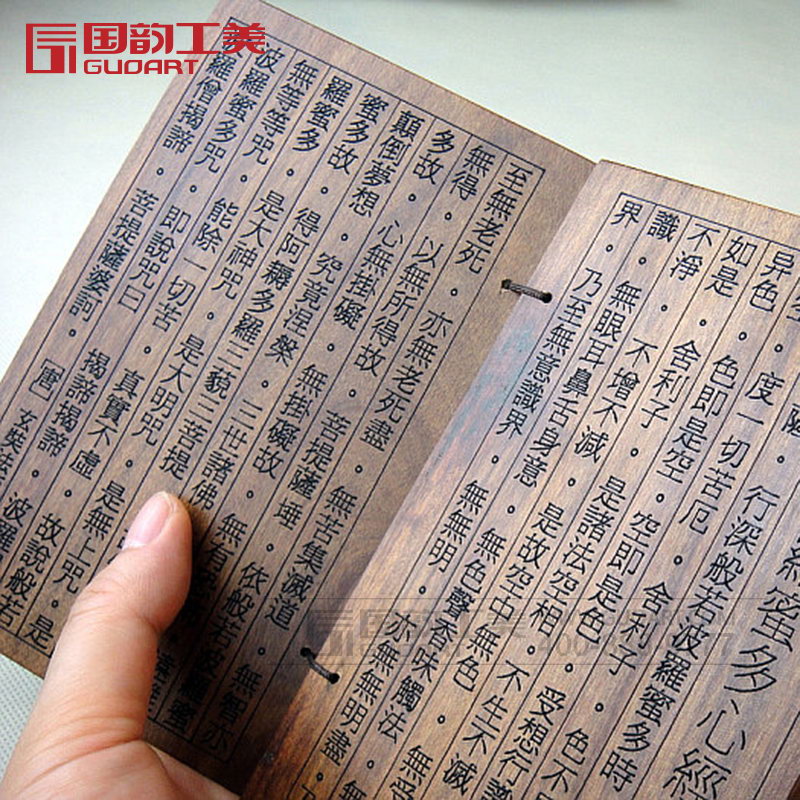 国韵工美
GUOART
蜜多心經
行深般若波羅蜜多時
度一切苦厄。舍利子。色不
異色。色即是空。空即是色。受想行識
如是。舍利子。是諸法空相。不生不滅
不淨。不增不減。是故空中無色。無受
識。無眼耳鼻舌身意。無色聲香味觸法。
界。乃至無意識界。無無明。亦無無明盡。
至無老死。亦無老死盡。無苦集滅道。無智亦
無得。以無所得故。菩提薩埵。依般若波羅蜜
多故。心無掛礙。無掛礙故。無有
顛倒夢想。究竟涅槃。三世諸佛
蜜多故。得阿耨多羅三藐三菩提
羅蜜多。是大神咒。是大明咒。是無上咒。是
無等等咒。能除一切苦。真實不虛。故說般若
波羅蜜多咒。即說咒曰。揭諦揭諦。波羅
羅僧揭諦。菩提薩婆訶。唐玄奘法
国韵工美